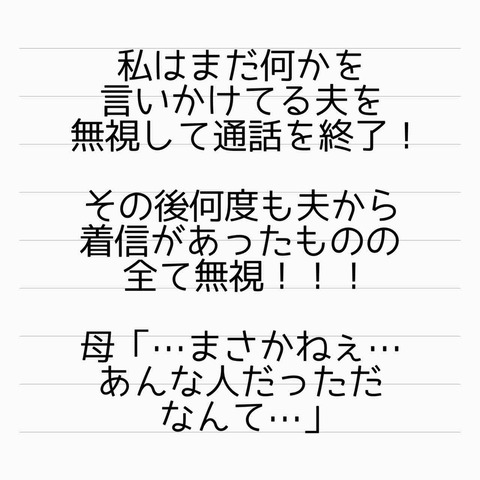 私はまだ何かを
言いかけてる夫を
無視して通話を終了！
その後何度も夫から
着信があったものの
全て無視！！！
母「…まさかねぇ…
あんな人だっただ
なんて…」